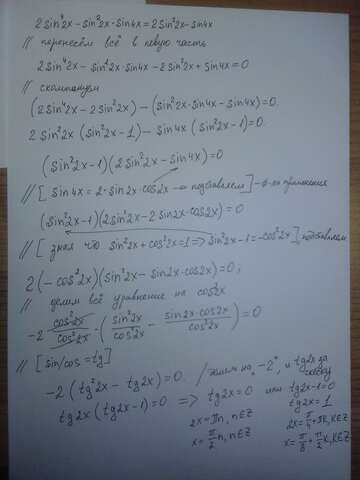 2sin⁴2x - sin²2x·sin4x = 2sin²2x - sin4x
// перенесём всё в левую часть
2sin⁴2x - sin²2x·sin4x - 2sin²2x + sin4x = 0
// скомпонуем
(2sin⁴2x - 2sin²2x) - (sin²2x·sin4x - sin4x) = 0.
2sin²2x (sin²2x - 1) - sin4x (sin²2x - 1) = 0.
(sin²2x - 1)(2sin²2x - sin4x) = 0
// [sin4x = 2·sin2x·cos2x → подставляем]
(sin²2x - 1)(2sin²2x - 2sin2x·cos2x) = 0
// [зная что sin²2x + cos²2x = 1 => sin²2x - 1 = -cos²2x], подставляем
2(-cos²2x)(sin²2x - sin2x·cos2x) = 0;
// делим всё уравнение на cos²2x
-2 cos²2x/cos²2x · (sin²2x/cos²2x - sin2x·cos2x/cos²2x) = 0
// [sin/cos = tg]
-2 (tg²2x - tg2x) = 0. /делим на "-2" и tg2x за скобку
tg2x (tg2x - 1) = 0 => tg2x = 0 или tg2x - 1 = 0
tg2x = 1
2x = πn, n∈Z 2x = π/4 + πk, k∈Z
x = π/2 n, n∈Z x = π/8 + π/2 k, k∈Z